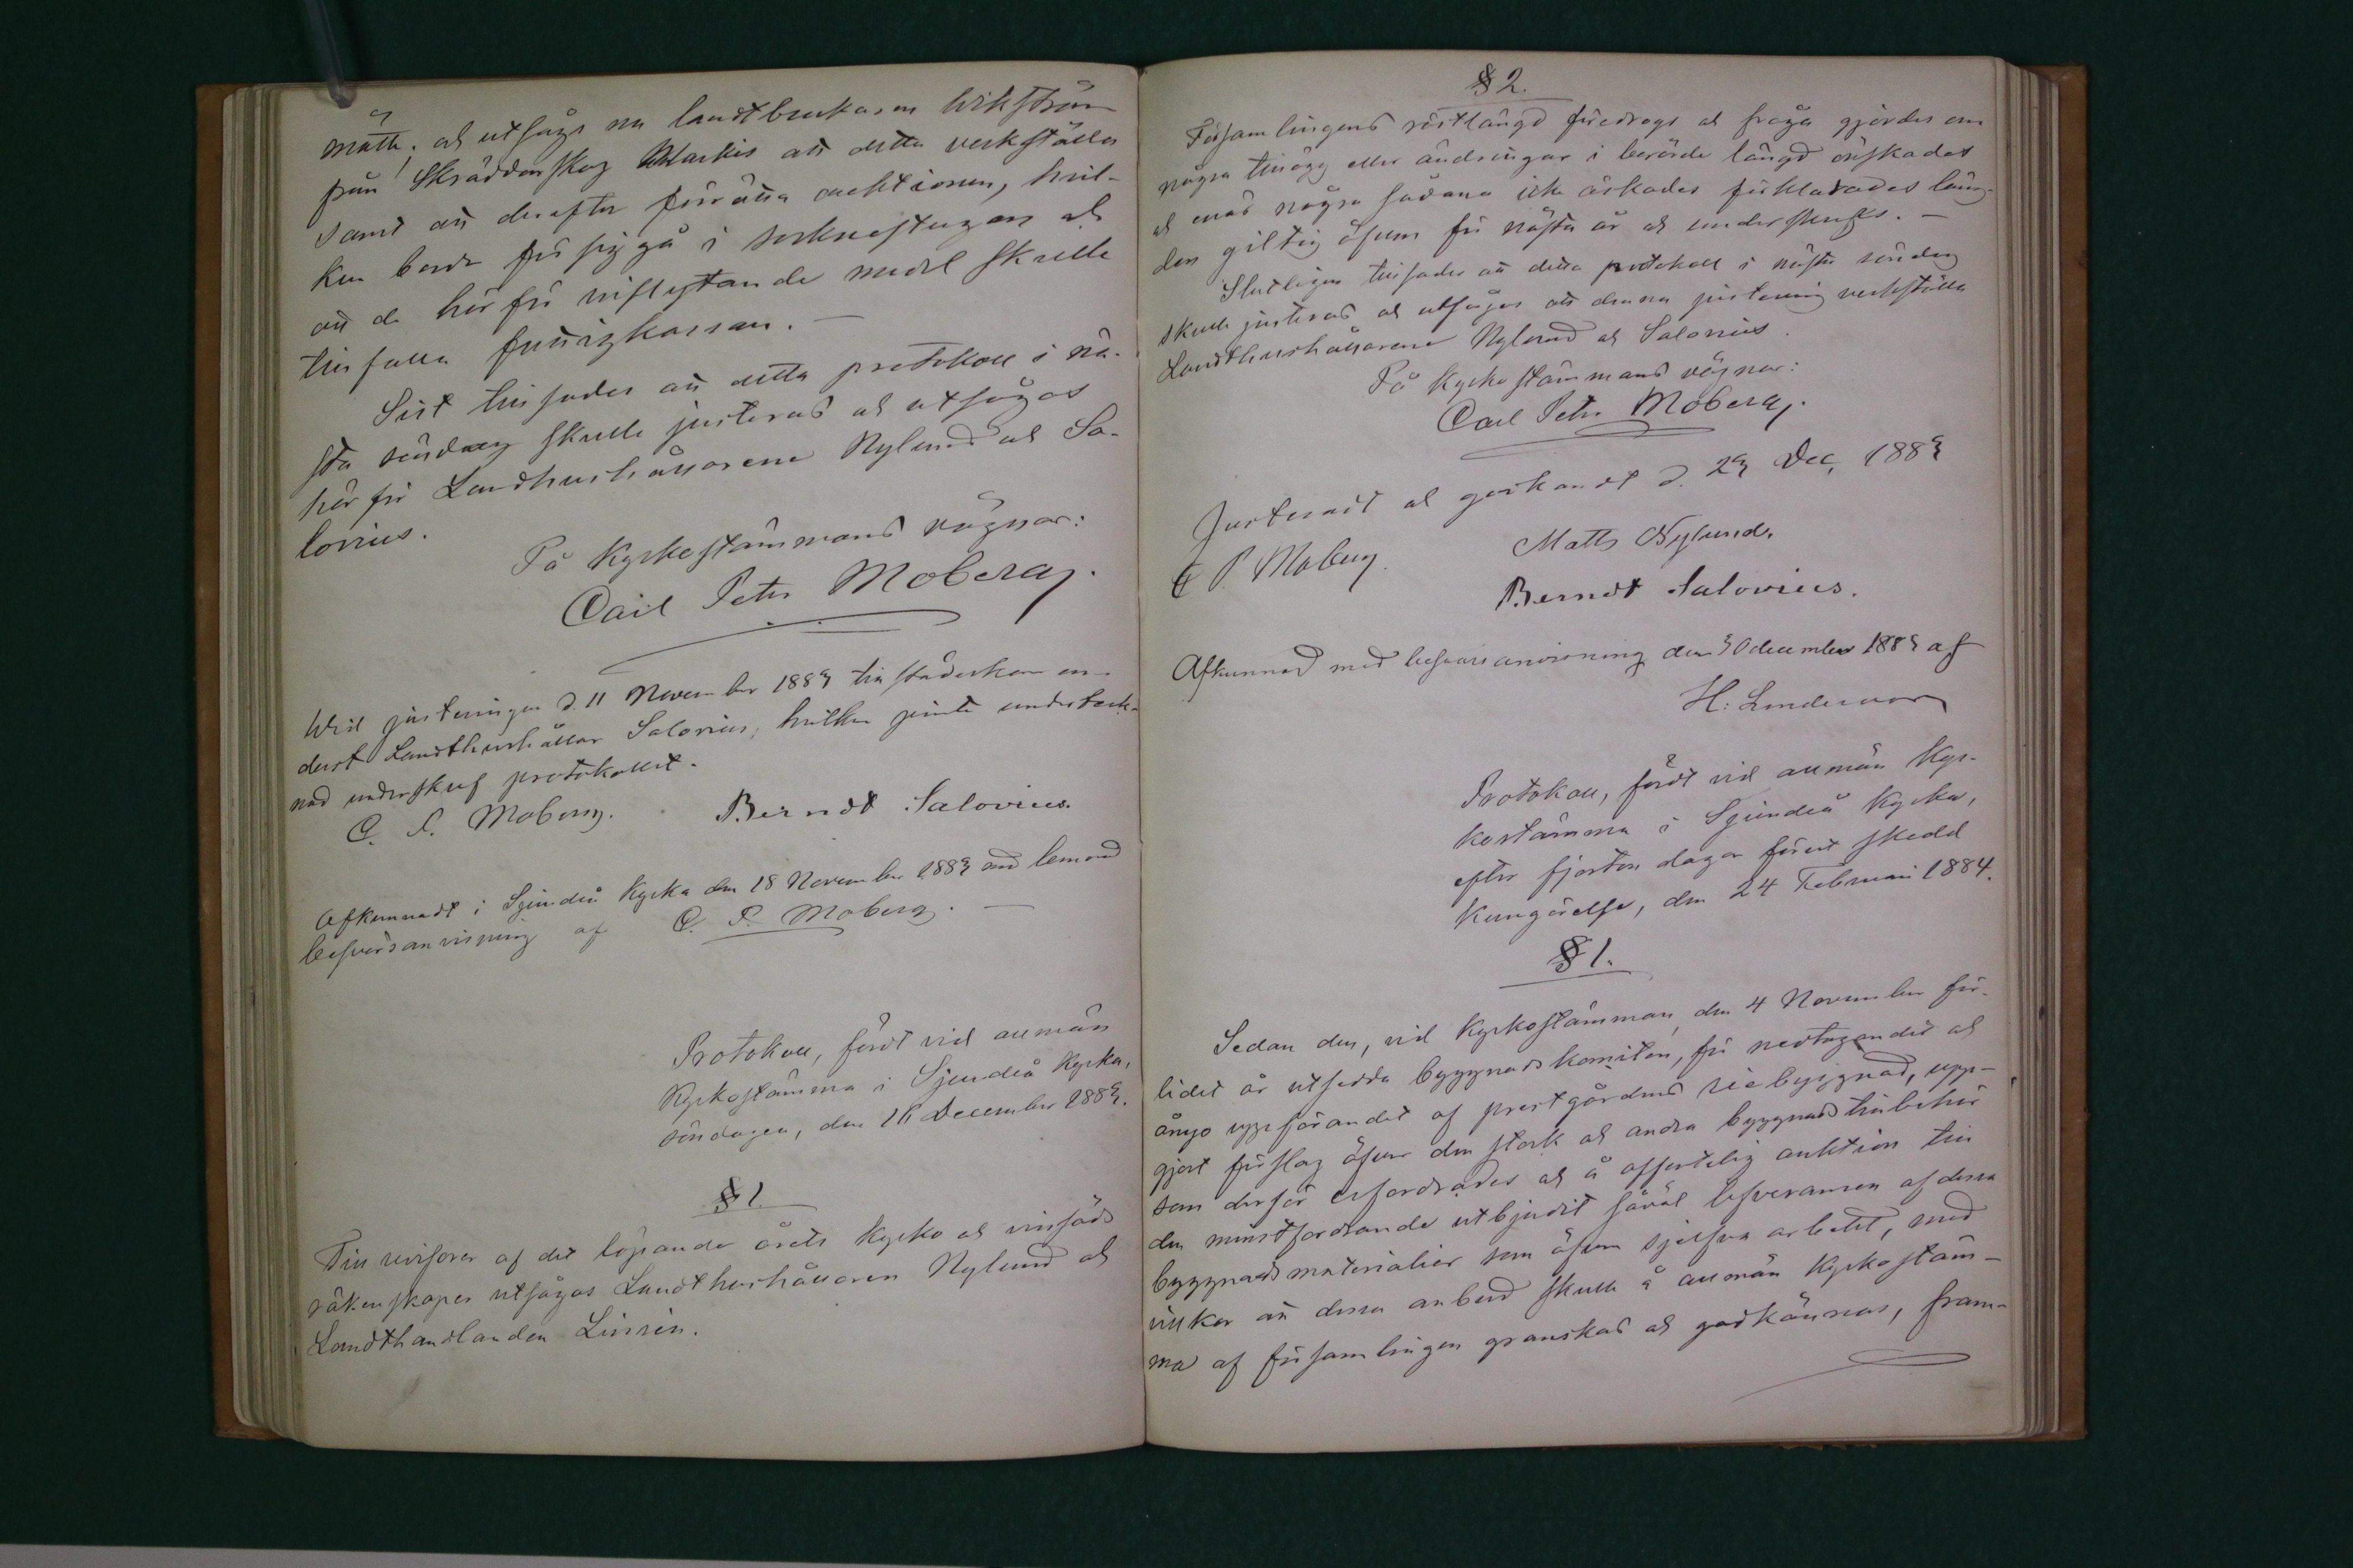 mötte; och utsågs nu landtbrukaren Wikström
från Skräddarskog Markis att detta verkställa
samt att derefter förrätta auktionen, hvil-
ken borde för sig gå i socknestugan och
att de härför inflytande medel skulle
tillfalla fattigkassan. —
Sist tillsades att detta protokoll i nä-
sta söndag skulle justeras och utsågos
härför Landthushållarene Nylund och Sa-
lovius.
På Kyrkostämmans vägnar:
Carl Petr Moberg.
Wid justeringen d. 11 November 1883 tillstädeskom en-
dast Landthushållar Salovius, hvilken jemte underteck-
nad underskref protokollet.
C. P. Moberg. Berndt Salovius.
Afkunnadt i Sjundeå Kyrka den 18 November 1883 med lemnad
besvärsanvisning af C. P. Moberg. —
Protokoll, fördt vid allmän
Kyrkostämma i Sjundeå Kyrka,
söndagen, den 16 December 1883.
§ 1.
Till revisorer af det löpande årets Kyrko och
räkenskaper utsågos Landthushållaren Nylund och
Landthandlanden Linrén.
§ 2.
Församlingens röstlängd föredrogs och fråga gjordes om
några tillägg eller ändringar i berörde längd önskades
och enär några sådana icke äskades förklarades läng-
den giltig äfven för nästa år och underskrefs. —
Slutligen tillsades att detta protokoll i nästa söndag
skulle justeras och utsågos att denna justering verkställa
Landthushållarene Nylund och Salovius.
På Kyrkostämmans vägnar:
Carl Petr Moberg.
Justeradt och godkändt d. 23 Dec. 1883
C P. Moberg. Matts Nylund.
Berndt Salovius.
Afkunnad med besvärsanvisning den 30 december 1883 af
H: Lindroos
Protokoll, fördt vid allmän Kyr-
kostämma i Sjundeå Kyrka,
efter fjorton dagar förut skedd
Kungörelse, den 24 Februari 1884.
§ 1.
Sedan den, vid Kyrkostämman, den 4 November för-
lidet år utsedda byggnadskomitén, för nedtagandet och
ånyo uppförandet af prestgårdens riebyggnad, upp-
gjort förslag öfver den stock och andra byggnads tillbehör
som derför erfordrades och å offentelig auktion till
den minstfordrande utbjudit såväl lefveransen af dessa
byggnadsmaterialier som äfven sjelfva arbetet, med
vilkor att dessa anbud skulle å allmän Kyrkostäm-
ma af församlingen granskas och godkännas, fram-